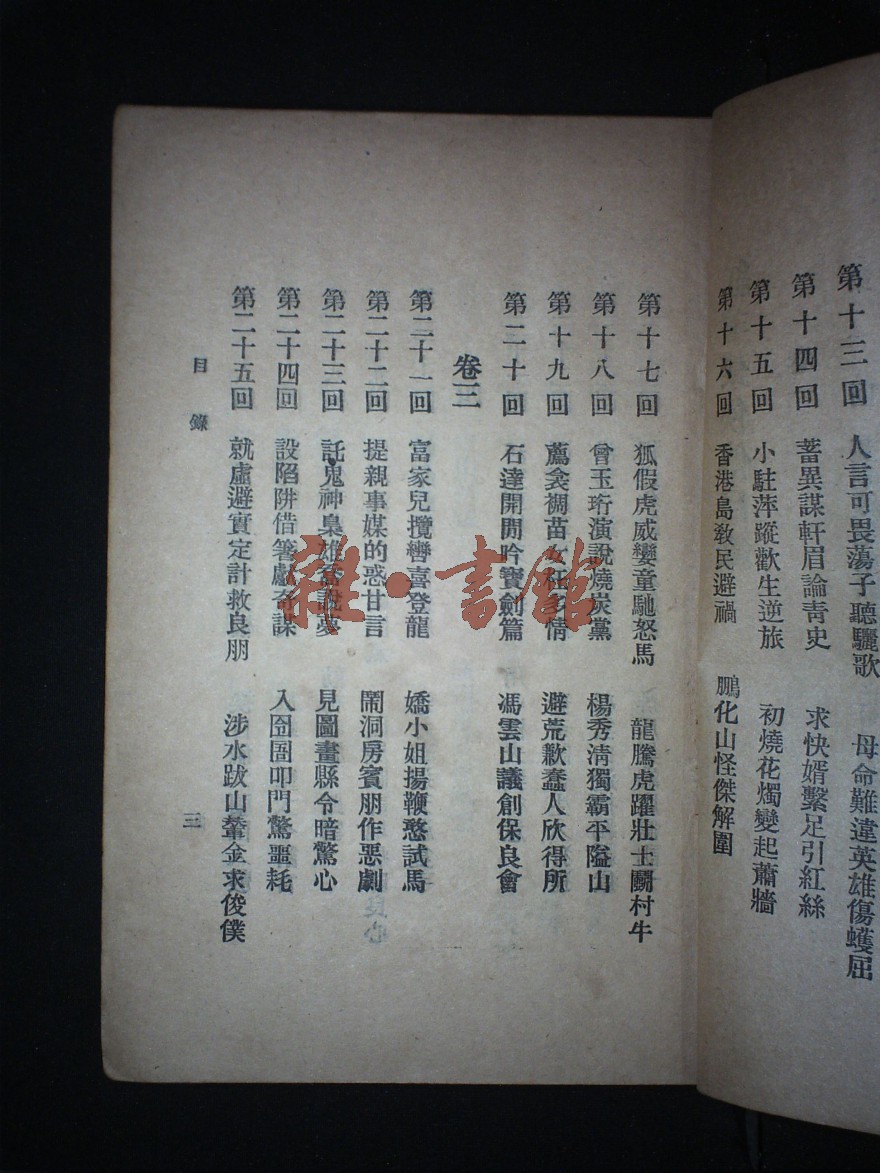 第十三回　人言可畏蕩子聽驪歌　母命難違英雄傷蠖屈
第十四回　蓄異謀軒眉論青史　求快婿繫足引紅絲
第十五回　小駐萍蹤歡生逆旅　初燒花燭變起蕭牆
第十六回　香港島敎民避禍　鵬化山怪傑解圍
第十七回　狐假虎威孌童馳怒馬　龍騰虎躍壯士鬭村牛
第十八回　曾玉珩演說燒炭黨　楊秀淸獨霸平隘山
第十九回　薦衾裯苗女枉多情　避荒歉蠢人欣得所
第二十回　石達開閒吟寶劍篇　馮雲山議創保良會
卷三
第二十一回　富家兒攬轡喜登龍　嬌小姐揚鞭憨試馬
第二十二回　提親事媒的惑甘言　鬧洞房賓朋作惡劇
第二十三回　託鬼神梟雄說夢　見圖畫縣令暗驚心
第二十四回　設陷阱借箸獻奇謀　入囹圄叩門驚噩耗
第二十五回　就虛避實定計救良朋　涉水跋山輦金求俊僕
目錄
三
雜·書館